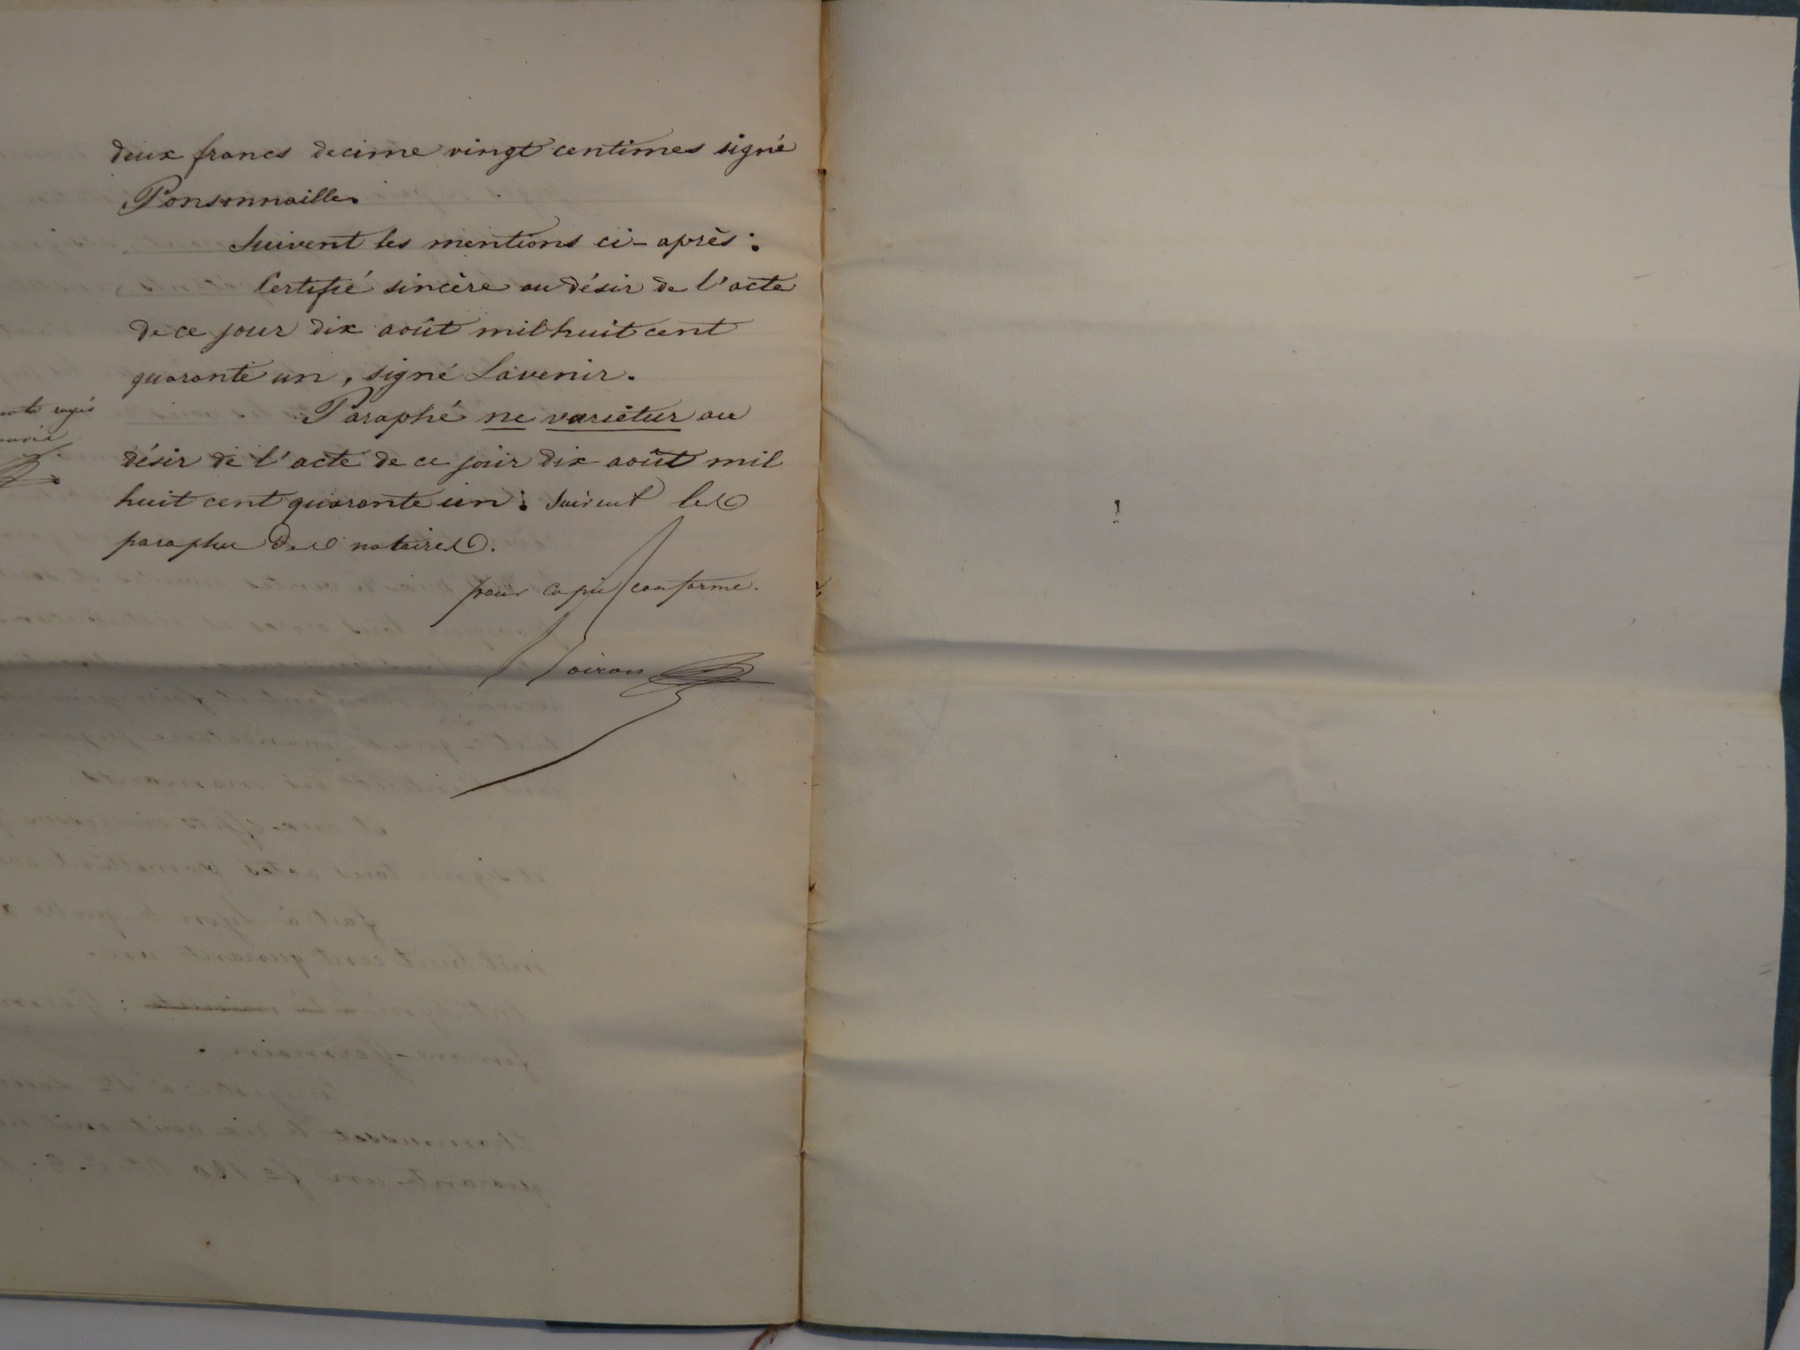 deux francs decime vingt centimes signé
Ponsonnaille.
Suivent les mentions ci-après :
Certifié sincère au désir de l'acte
de ce jour dix août mil huit cent
quarante un, signé Lavenir.
Paraphé ne varietur au
désir de l'acte de ce jour dix août mil
huit cent quarante un : Suivent les
paraphes des notaires.
pour copie conforme.
rayés